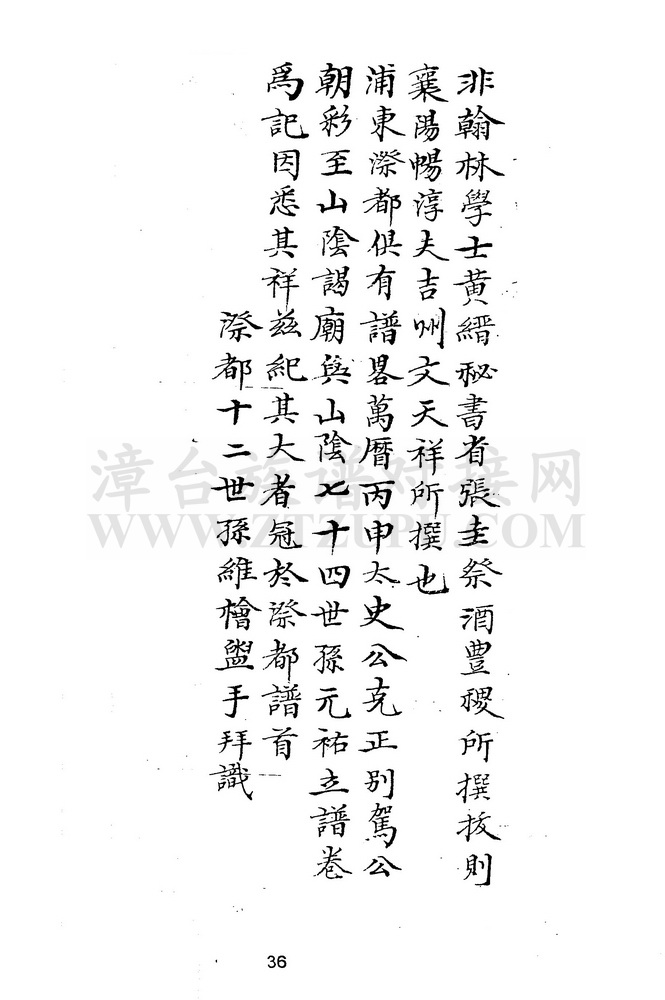 非翰林學士黄縉秘書省張圭祭酒豊稷所撰技則
襄陽暢淳夫吉州文天祥所撰也
浦東漈都俱有譜畧萬曆丙申太史公克正別駕公
朝彩至山陰謁廟與山陰七十四世孫元祐立譜卷
為記因悉其祥兹紀其大者冠於漈都譜首
漈都十二世孫維檜盥手拜識
漳台族谱对接网
WWW.ZTZUPU.COM
36